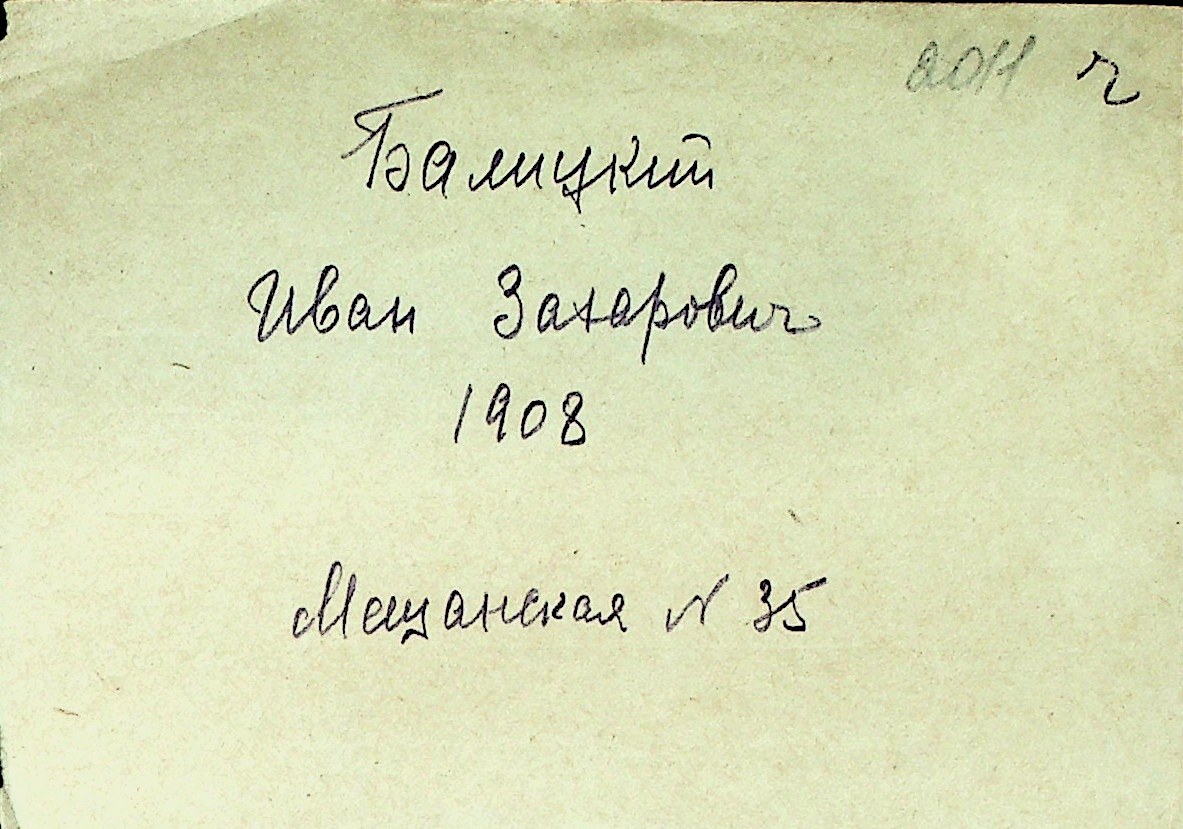 2011 ч
Балицкий
Иван Захарович
1908
Мещанская № 35